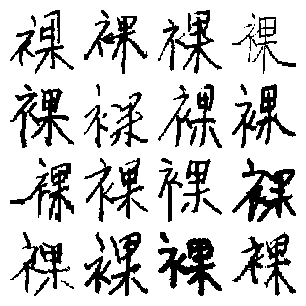 裸裸裸裸
裸裸裸裸
裸裸裸裸
裸裸裸裸